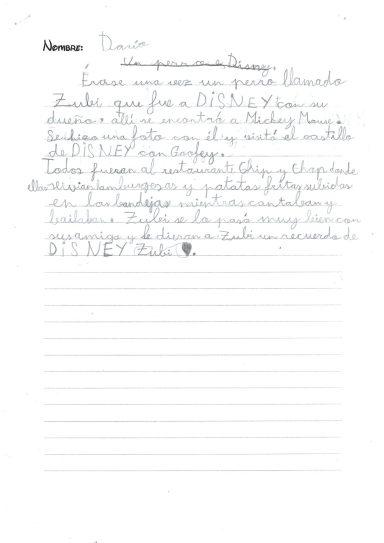 NOMBRE: Darío
Un perro en Disney.
Érase una vez un perro llamado
Zubi que fue a DISNEY con su
dueño, allí se encontró a Mickey Mouse.
Se hizo una foto con él y visitó el castillo
de DISNEY con Goofey.
Todos fueron al restaurante Chip y Chap donde
ellos servían hamburgesas y patatas fritas subidas
en las bandejas mientras cantaban y
bailaban. Zubi se lo pasó muy bien con
sus amigo y le dieron a Zubi un recuerdo de
DISNEY Zubi